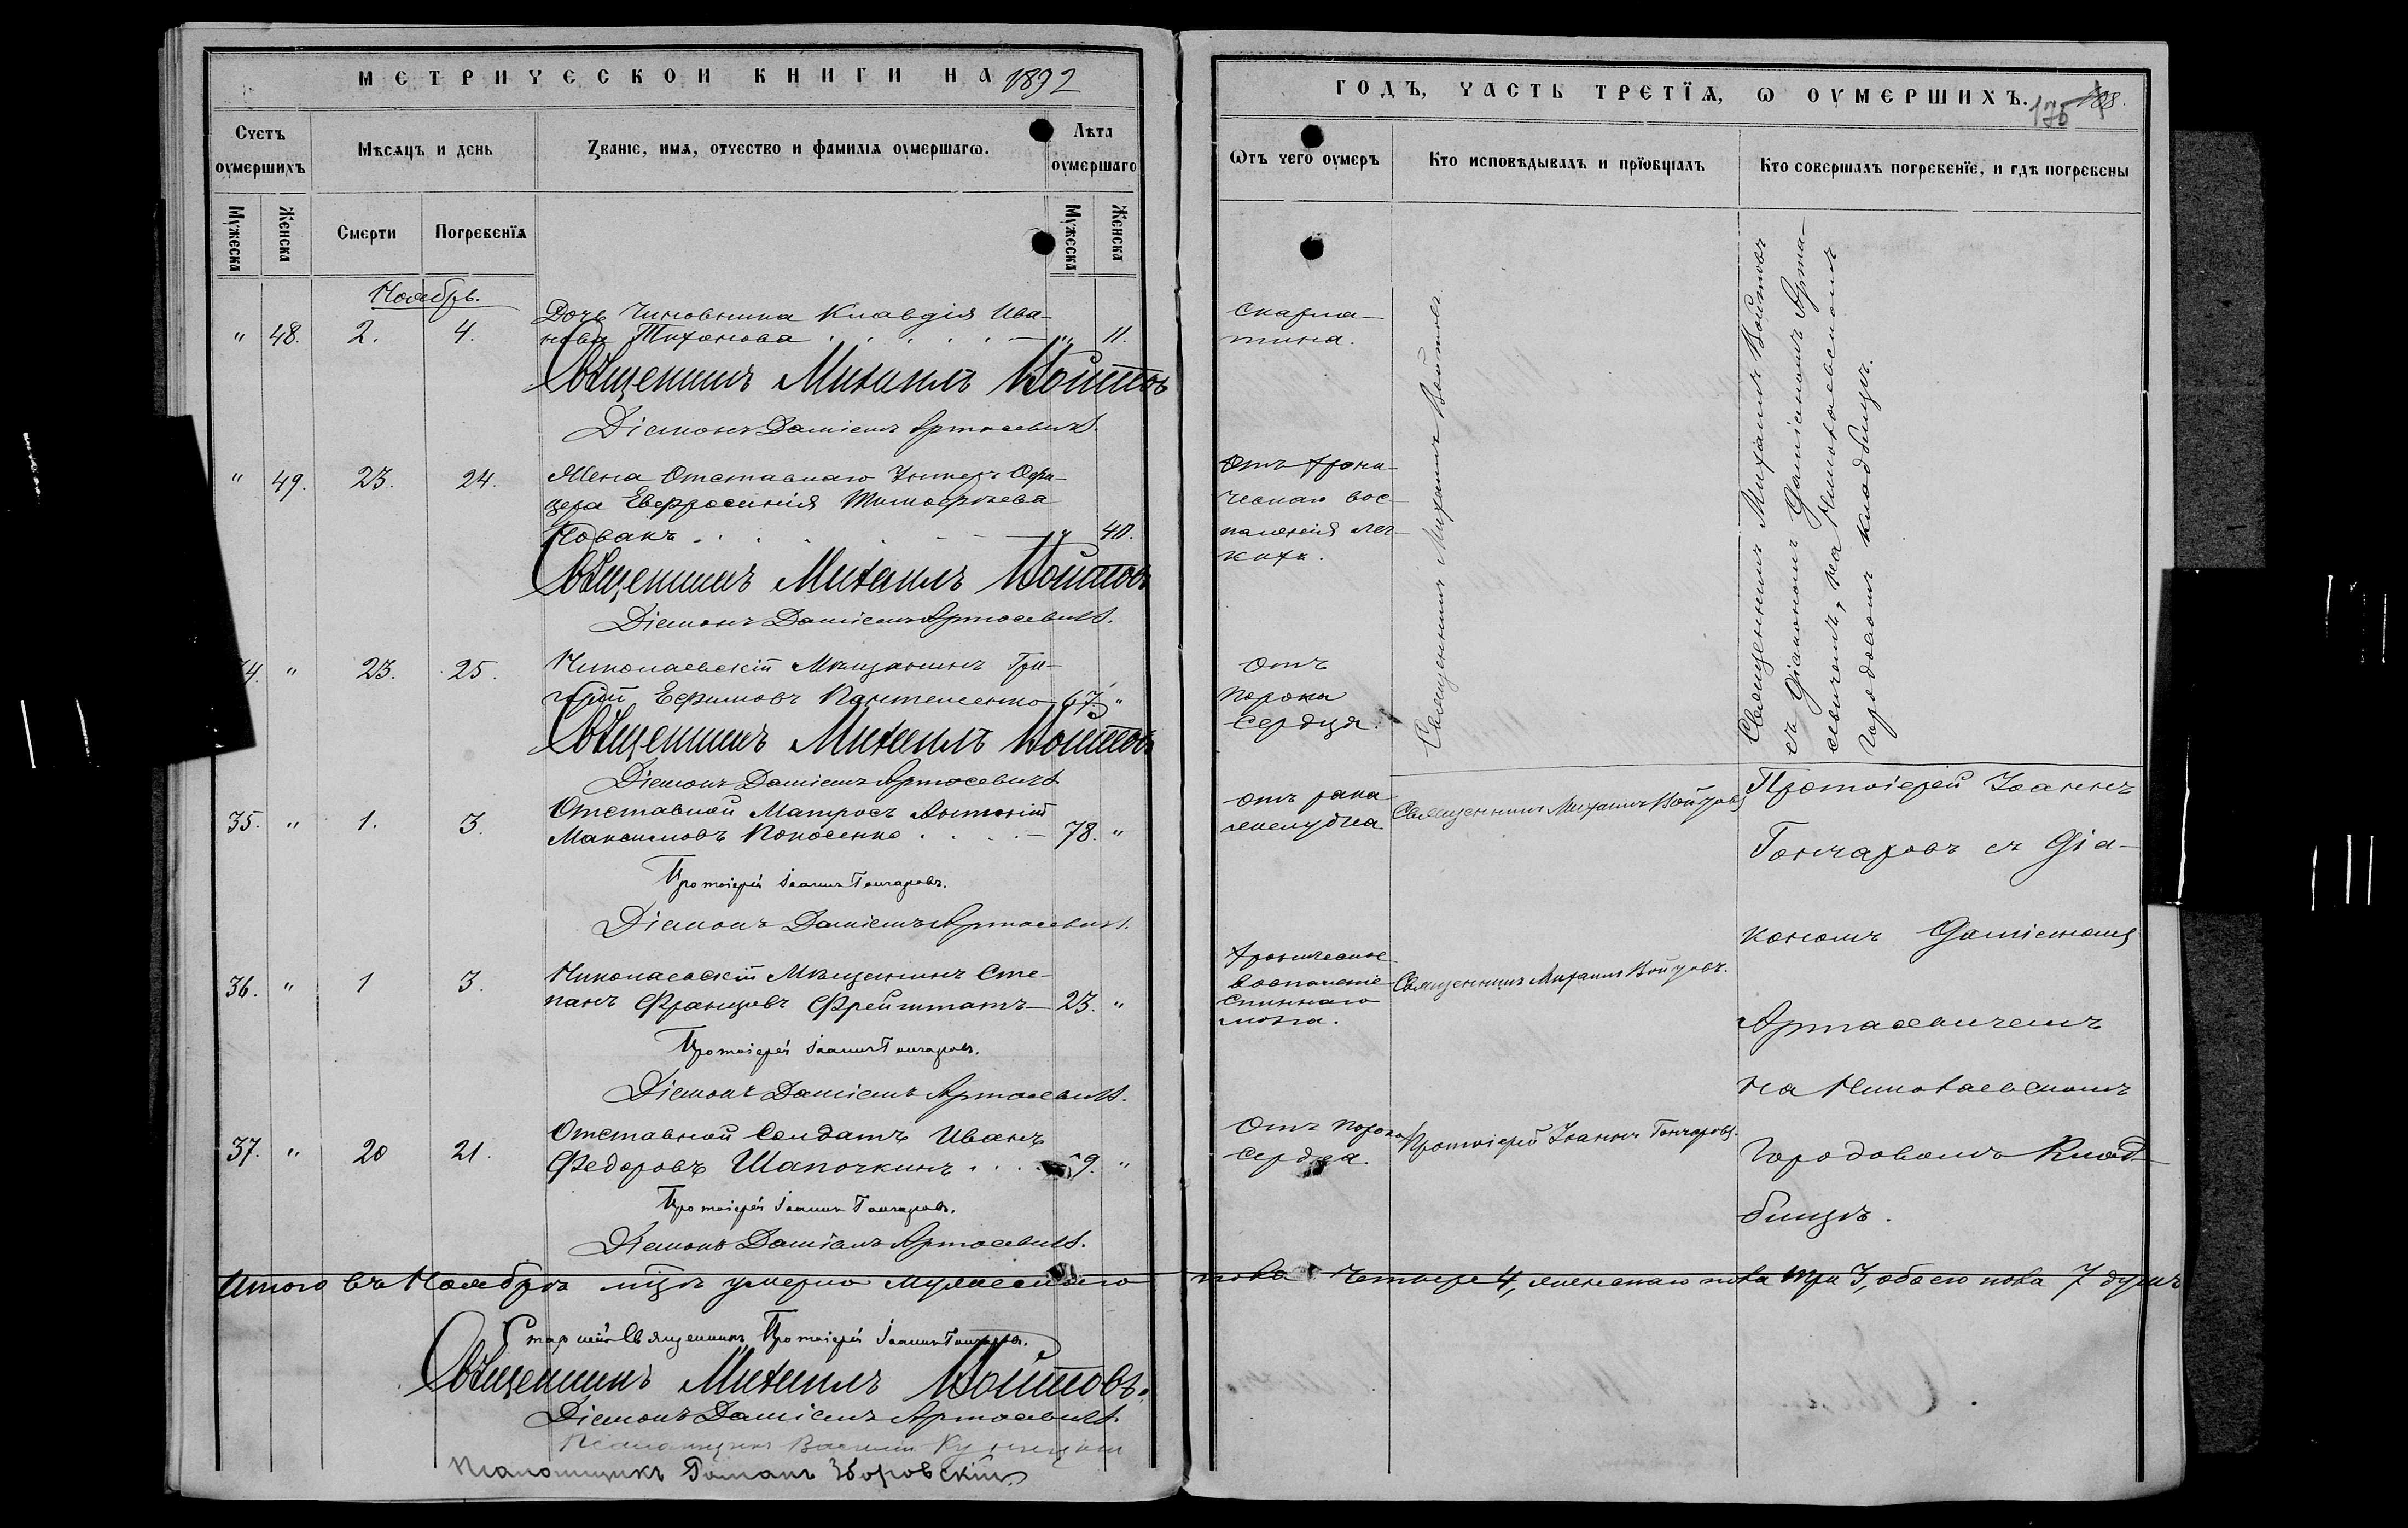 МЕТРИЧЕСКОЙ КНИГИ НА 1892
Счетъ оумершихъ
Мѣсяцъ и день
Званіе, имя, отчество и фамилія оумершагѡ.
Лѣта оумершаго
Мужеска
Женска
Смерти
Погребенїя
Мужеска
Женска
Ноябрь.
" 48. 2. 4. Дочь Чиновника Клавдія Ива-
нова Тихонова " 11.
Священникъ Михаилъ Войтовъ
Діаконъ Даміанъ Артасевичъ.
" 49. 23. 24. Жена Отставнаго Унтеръ Офи-
цера Евфросинія Тимофѣева
Новакъ " 40.
Священникъ Михаилъ Войтовъ
Діаконъ Даміанъ Артасевичъ.
34. " 23. 25. Николаевскій Мѣщанинъ Гри-
горій Ефимовъ Пантеленко 67. "
Священникъ Михаилъ Войтовъ
Діаконъ Даміанъ Артасевичъ.
35. " 1. 3. Отставной Матросъ Антоній
Максимовъ Кокосенко 78. "
Протоіерей Іоаннъ Гончаровъ.
Діаконъ Даміанъ Артасевичъ.
36. " 1 3. Николаевскій Мѣщанинъ Сте-
панъ Францовъ Фрейштатъ 23. "
Протоіерей Іоаннъ Гончаровъ.
Діаконъ Даміанъ Артасевичъ.
37. " 20 21. Отставной Солдатъ Иванъ
Федоровъ Шапочкинъ 9. "
Протоіерей Іоаннъ Гончаровъ.
Діаконъ Даміанъ Артасевичъ.
Итого въ Ноябрѣ мцѣ умерло мужескаго пола четыре 4, женскаго пола три 3, обоего пола 7 душъ
Старшій Священникъ Протоіерей Іоаннъ Гончаровъ.
Священникъ Михаилъ Войтовъ.
Діаконъ Даміанъ Артасевичъ.
Псаломщикъ Василій
Псаломщикъ Романъ Зборовскій
ГОДЪ, ЧАСТЬ ТРЕТЇЯ, Ѡ ОУМЕРШИХЪ.
176
Ѡтъ чего оумеръ
Кто исповѣдывалъ и прїобщалъ
Кто совершалъ погребенїе, и гдѣ погребены
Скарла-
тина.
Отъ хрони-
ческаго вос-
паленія лег-
кихъ.
Отъ
порока
сердца.
Священникъ Михаилъ Войтовъ
Священникъ Михаилъ Войтовъ
съ Діакономъ Даміаномъ Арта-
севичемъ, на Николаевскомъ
городовомъ кладбищѣ.
Отъ рака
желудка
Священникъ Михаилъ Войтовъ
Хроническое
воспаленіе
спиннаго
мозга.
Священникъ Михаилъ Войтовъ.
Отъ порока
сердца.
Протоіерей Іоаннъ Гончаровъ.
Протоіерей Іоаннъ
Гончаровъ съ Діа-
кономъ Даміаномъ
Артасевичемъ
на Николаевскомъ
городовомъ клад-
бищѣ.